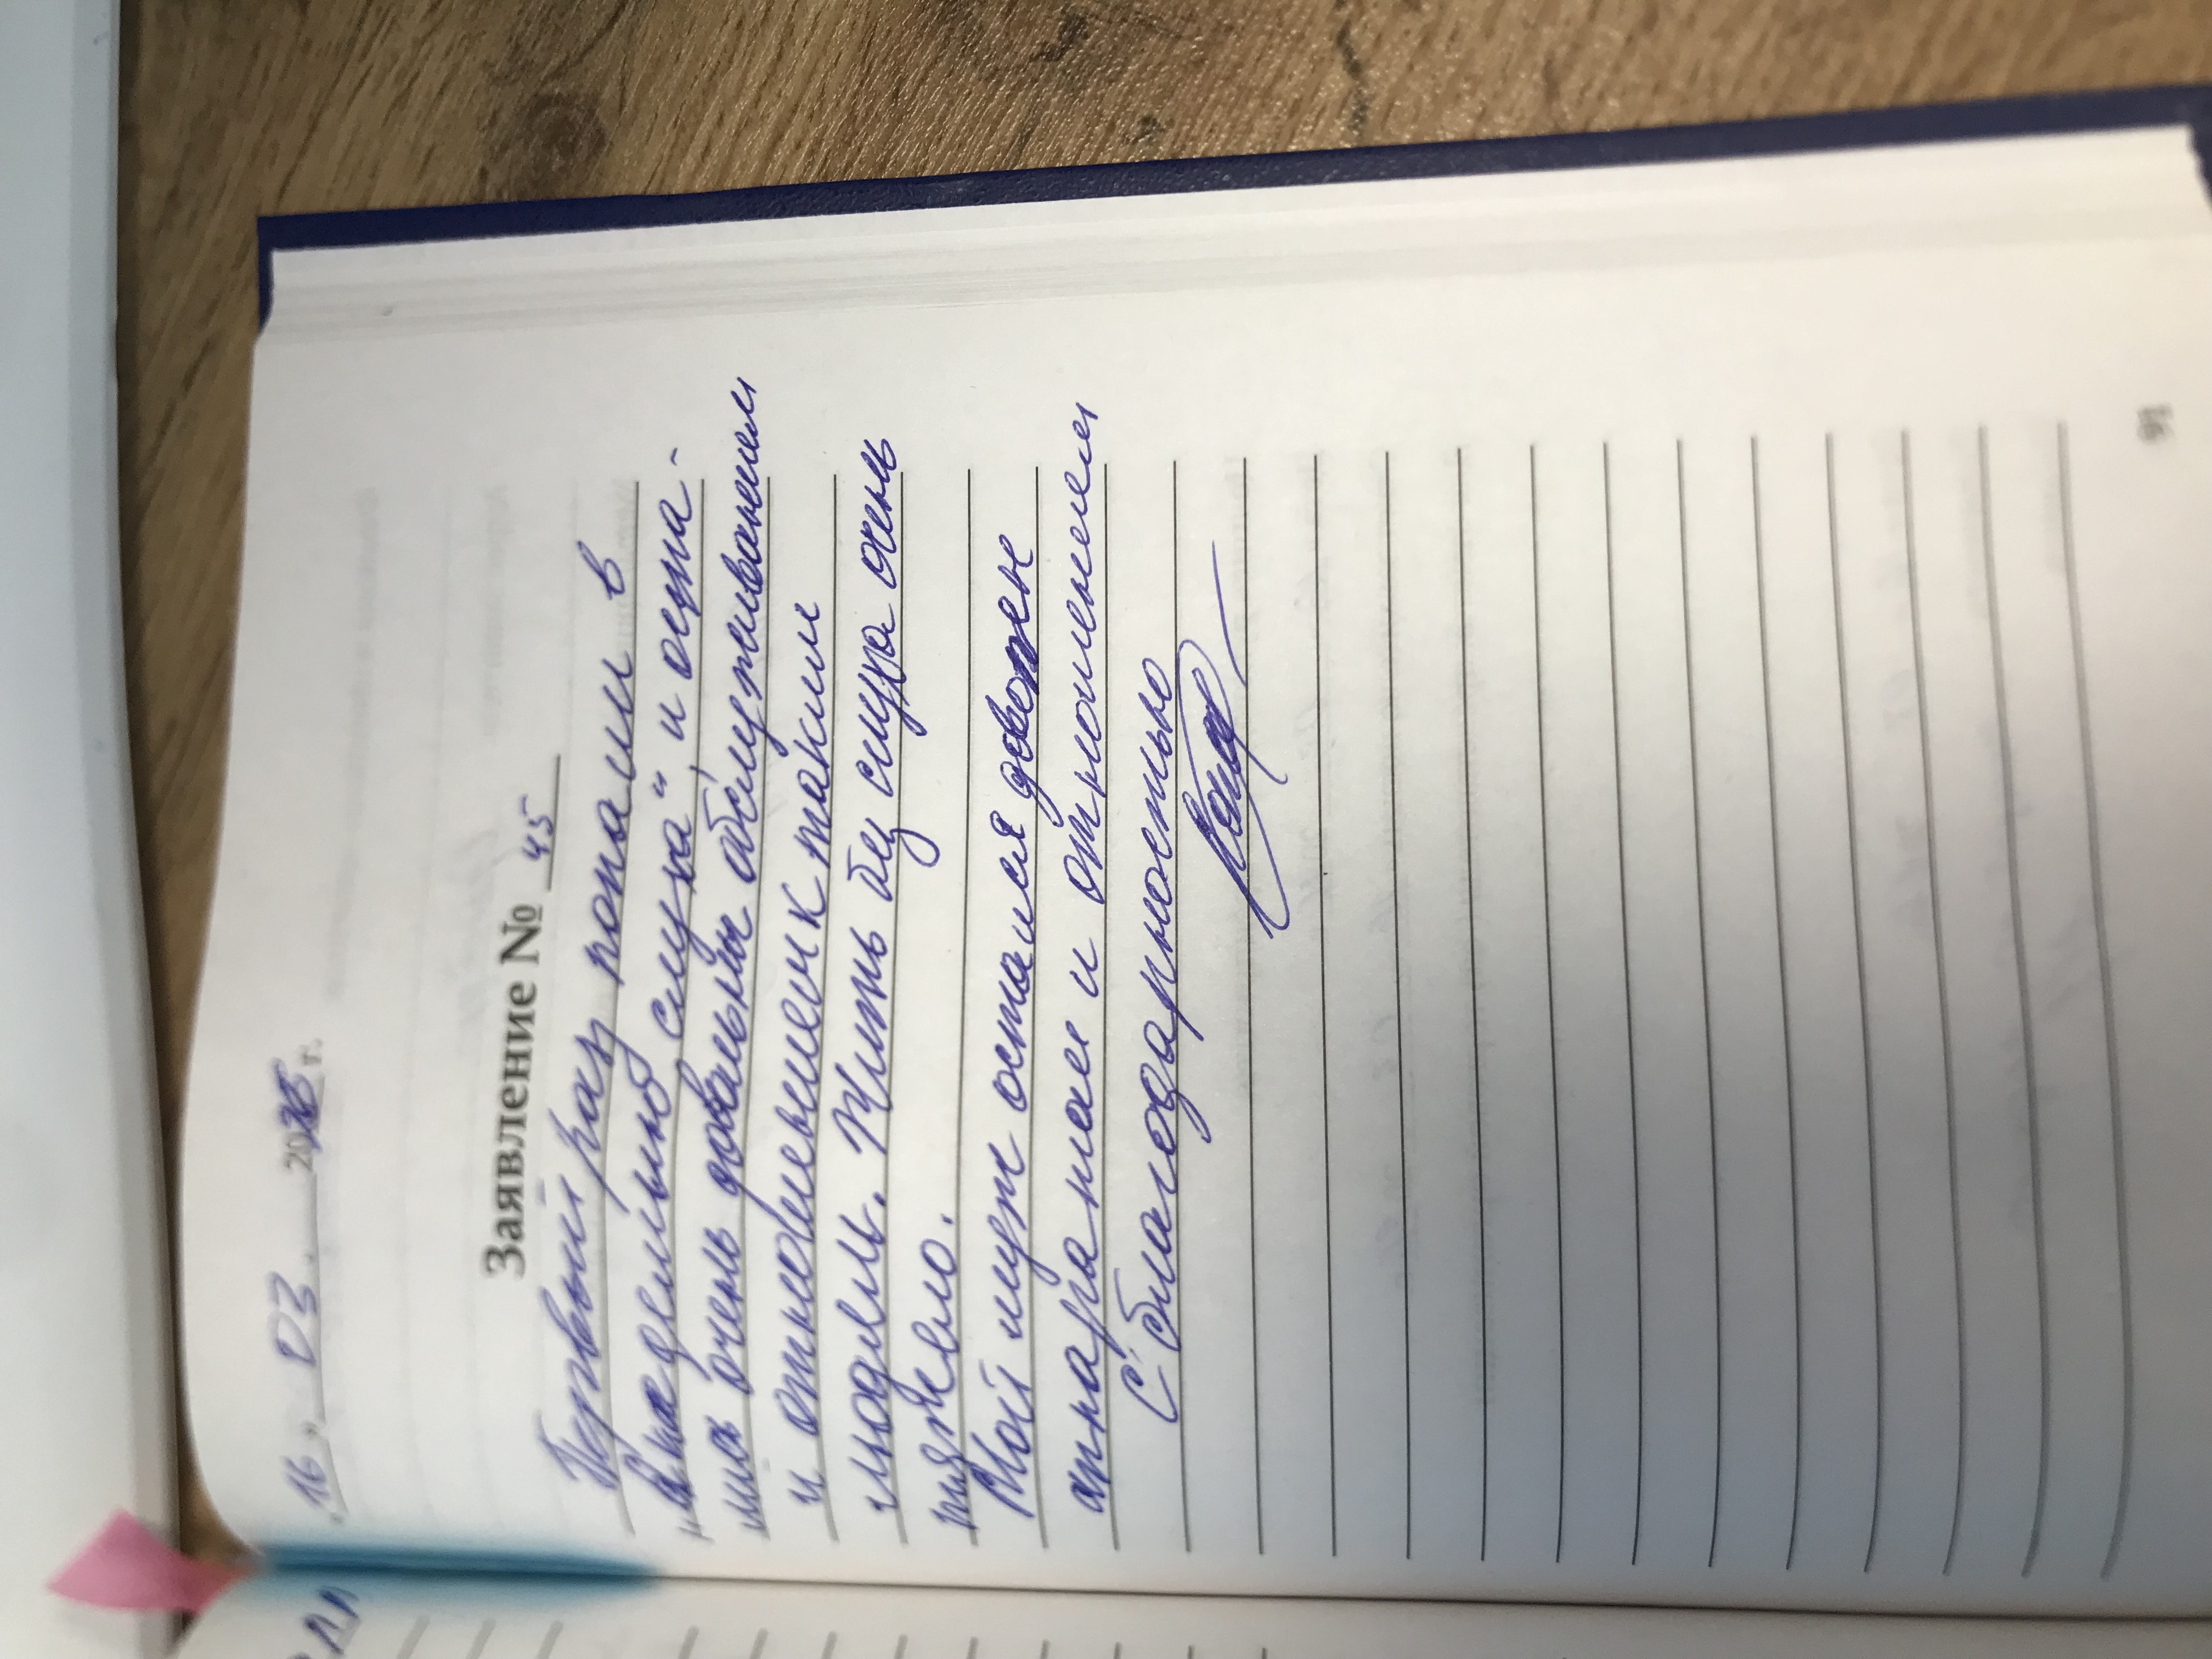 „16" 03. 20 г.
Заявление № 45
Первый раз попали в
„Академию слуха", и оста-
лись очень довольны абслуживанием
и отношением к таким
людям. Жить без слуха очень
тяжело.
Мой муж остался доволен
аппаратом и отношением
С благодарностью
91